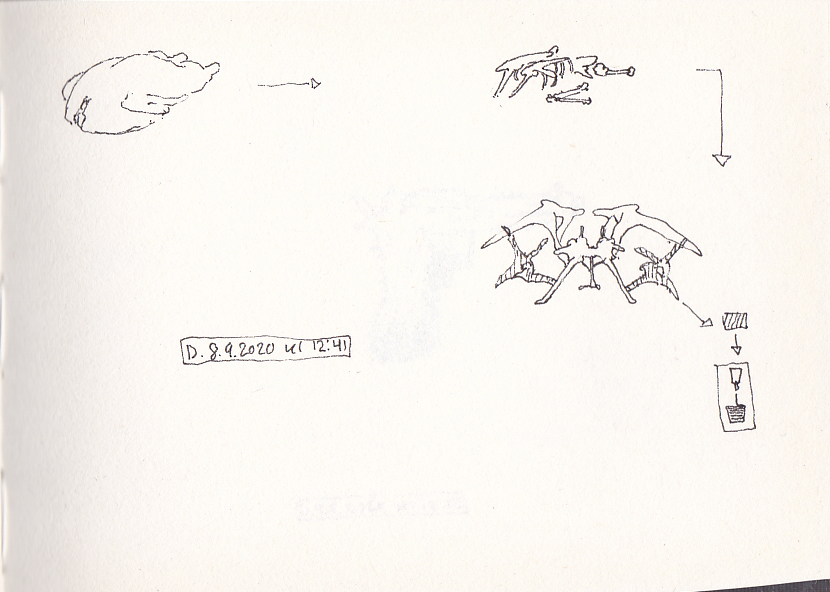 D. 8.9.2020 kl 12:41